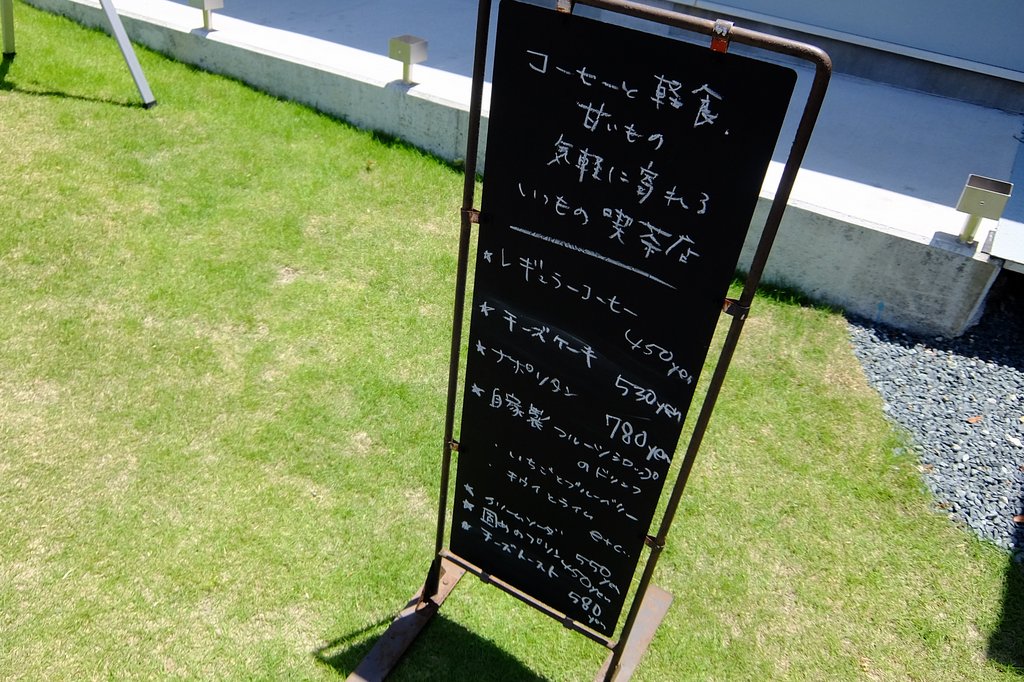 コーヒーと軽食、
甘いもの
気軽に寄れる
いつもの喫茶店
★レギュラーコーヒー
450yen
★チーズケーキ
530yen
★ナポリタン
780yen
★自家製フルーツシロップ
のドリンク
・いちごとブルーベリー
・キウイとライム
etc..
★クリームソーダ 550yen
★固めのプリン 450yen
★チーズトースト
580yen